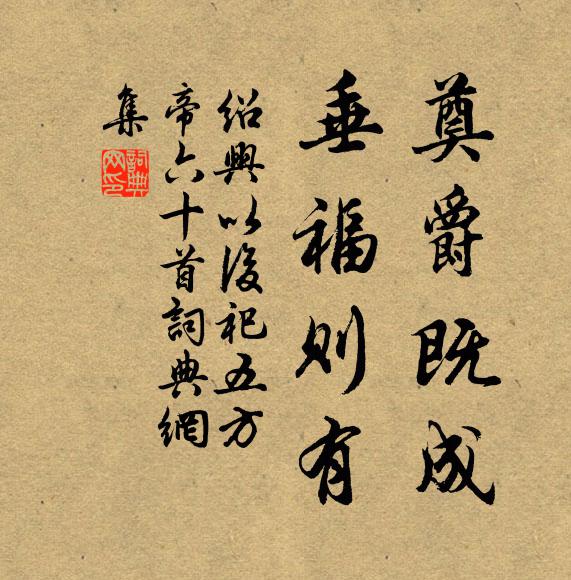 奠爵既成
垂福则有
绍兴以後祀五方
帝六十首詞典網
集
詞典網印